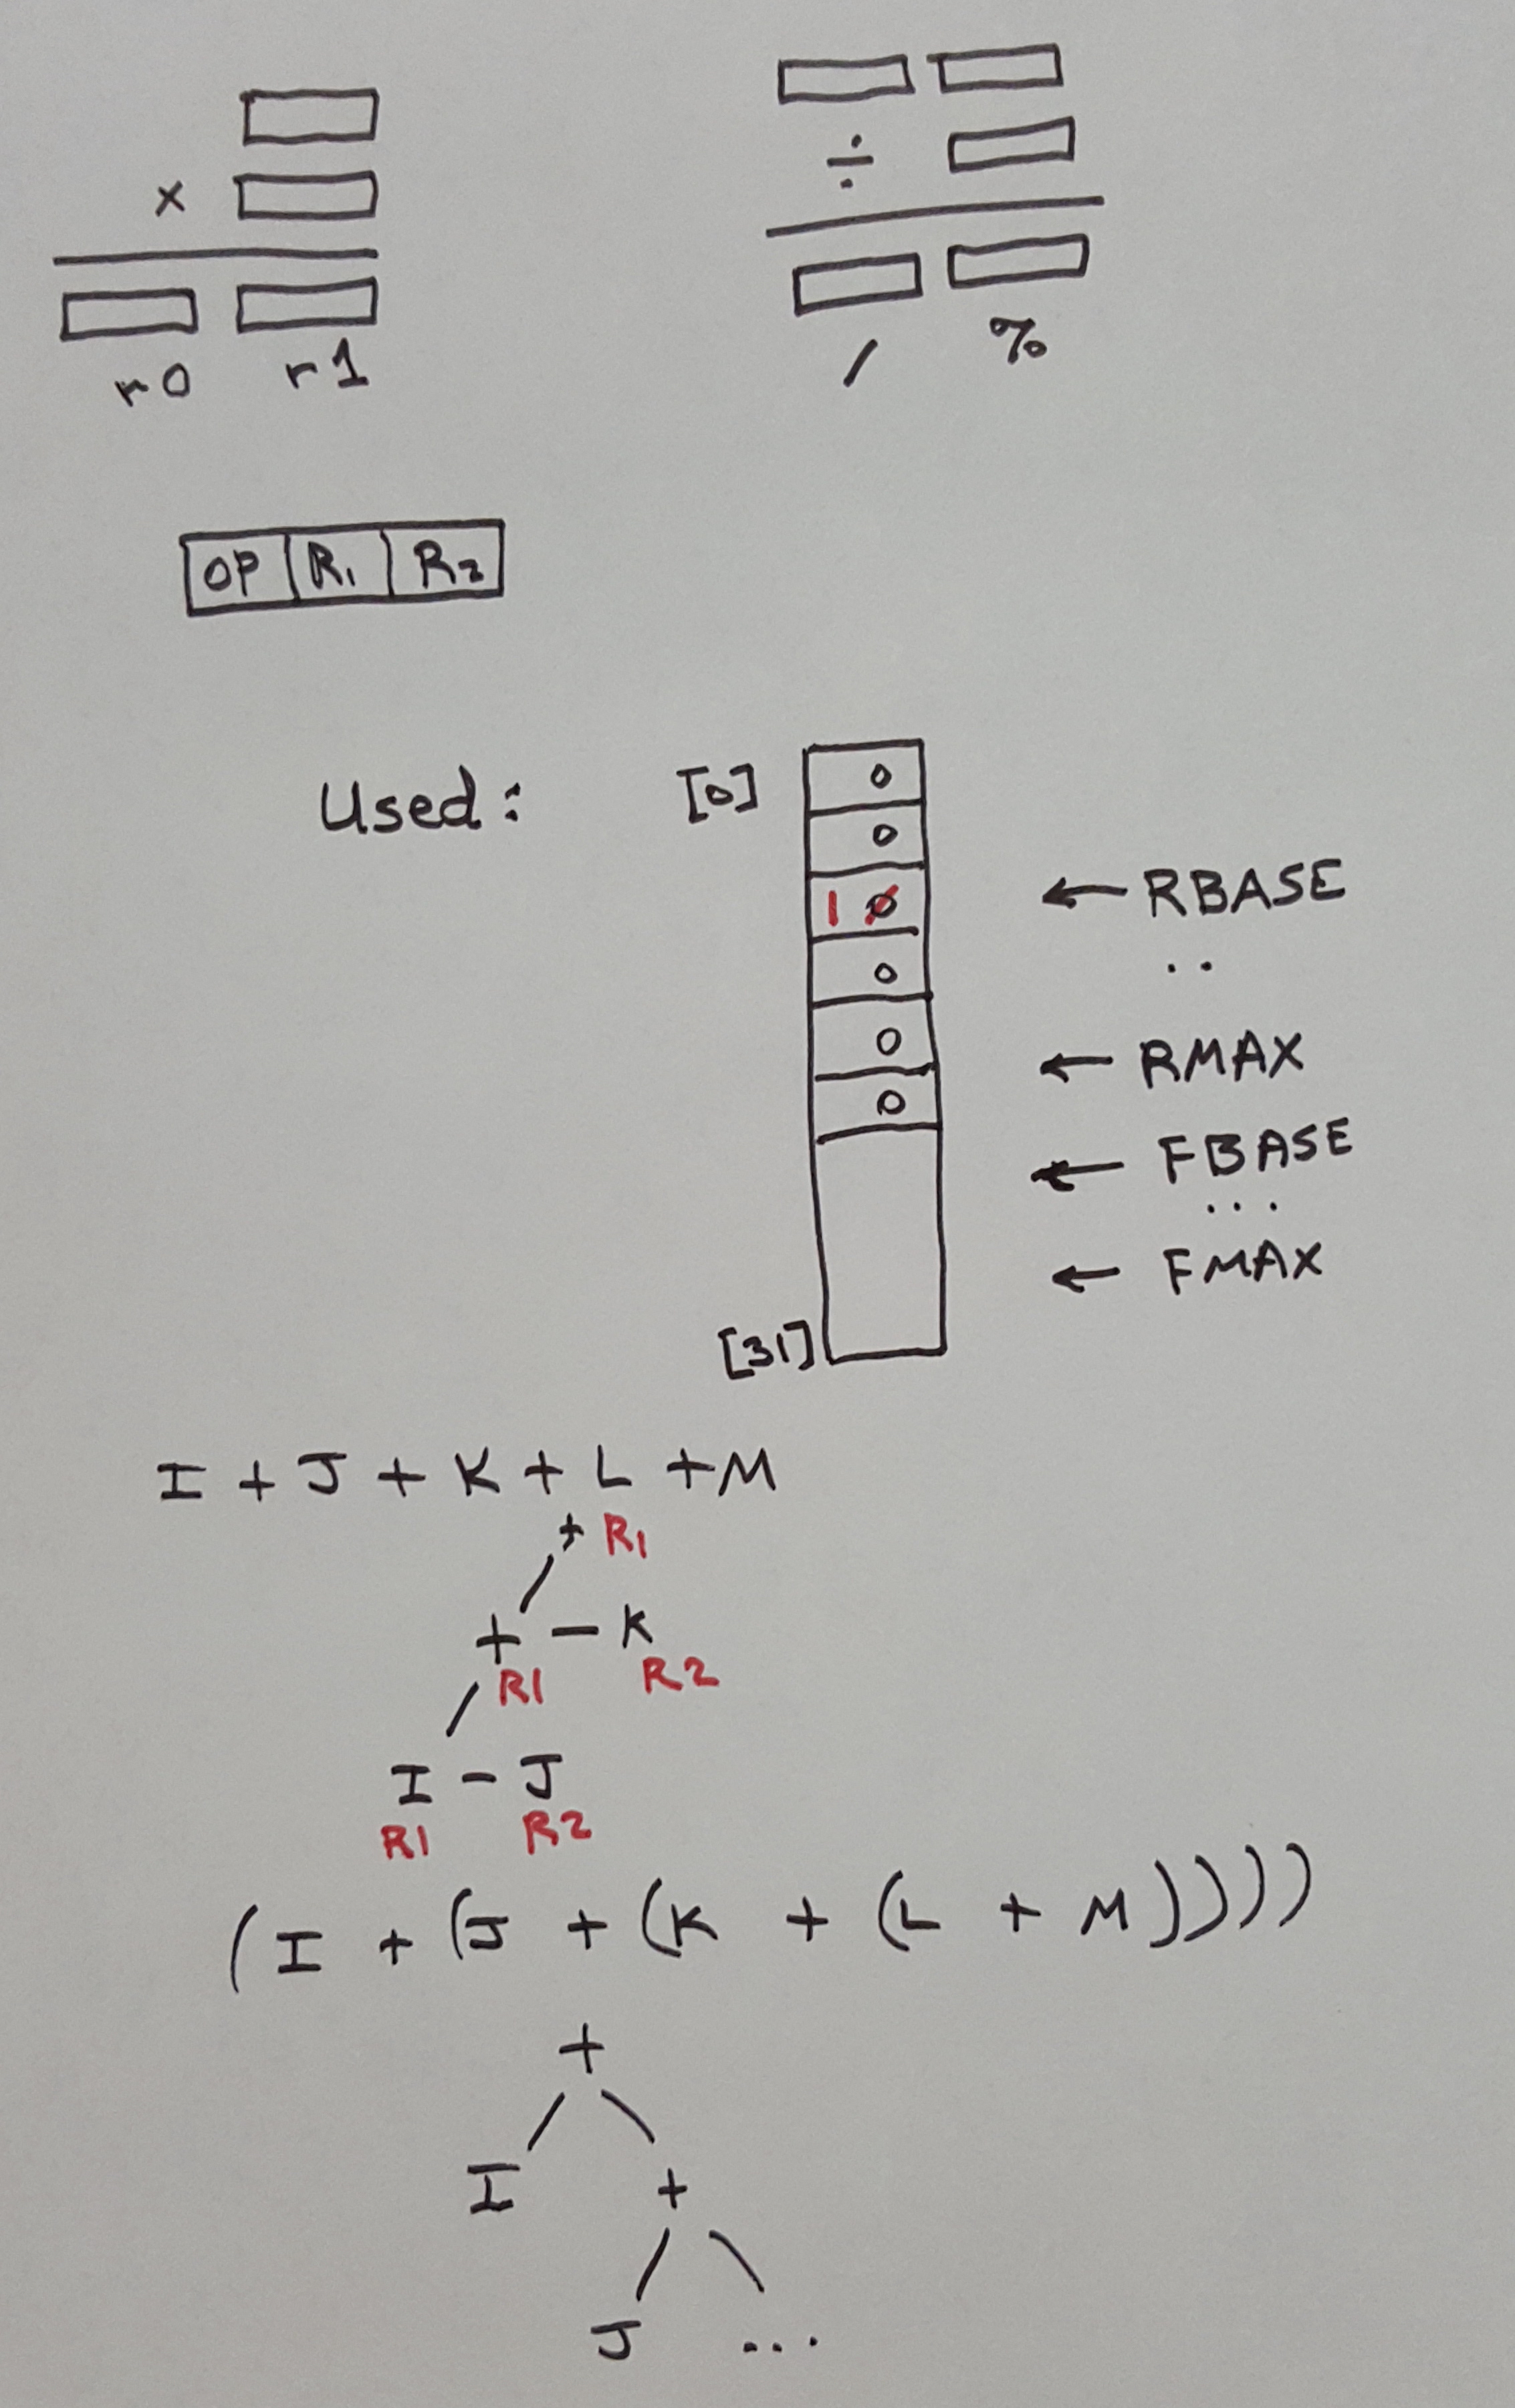 ×
÷
r0 r1
/ %
OP R1 R2
Used: [0] 0
0
1 0 ← RBASE
..
0
0 ← RMAX
0
← FBASE
...
← FMAX
[31]
I + J + K + L + M
+ R1
+ - K
R1 R2
I - J
R1 R2
(I + (J + (K + (L + M))))
+
I +
J ...